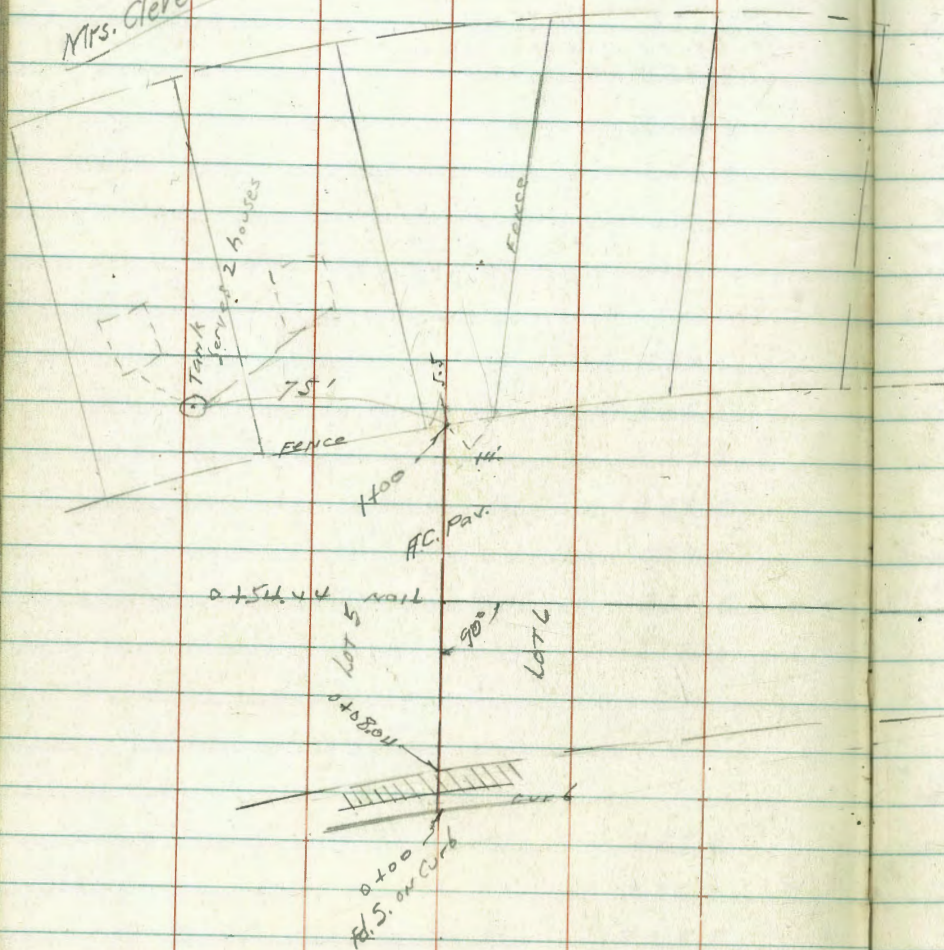 Mrs. Cleve
Tank
serves 2 houses
Fence
5.5
75'
Fence
1+00
A.C. Pav.
0+54.44 nail
90°
LOT 5
LOT 6
curb
0+00
Fd. S. on Curb